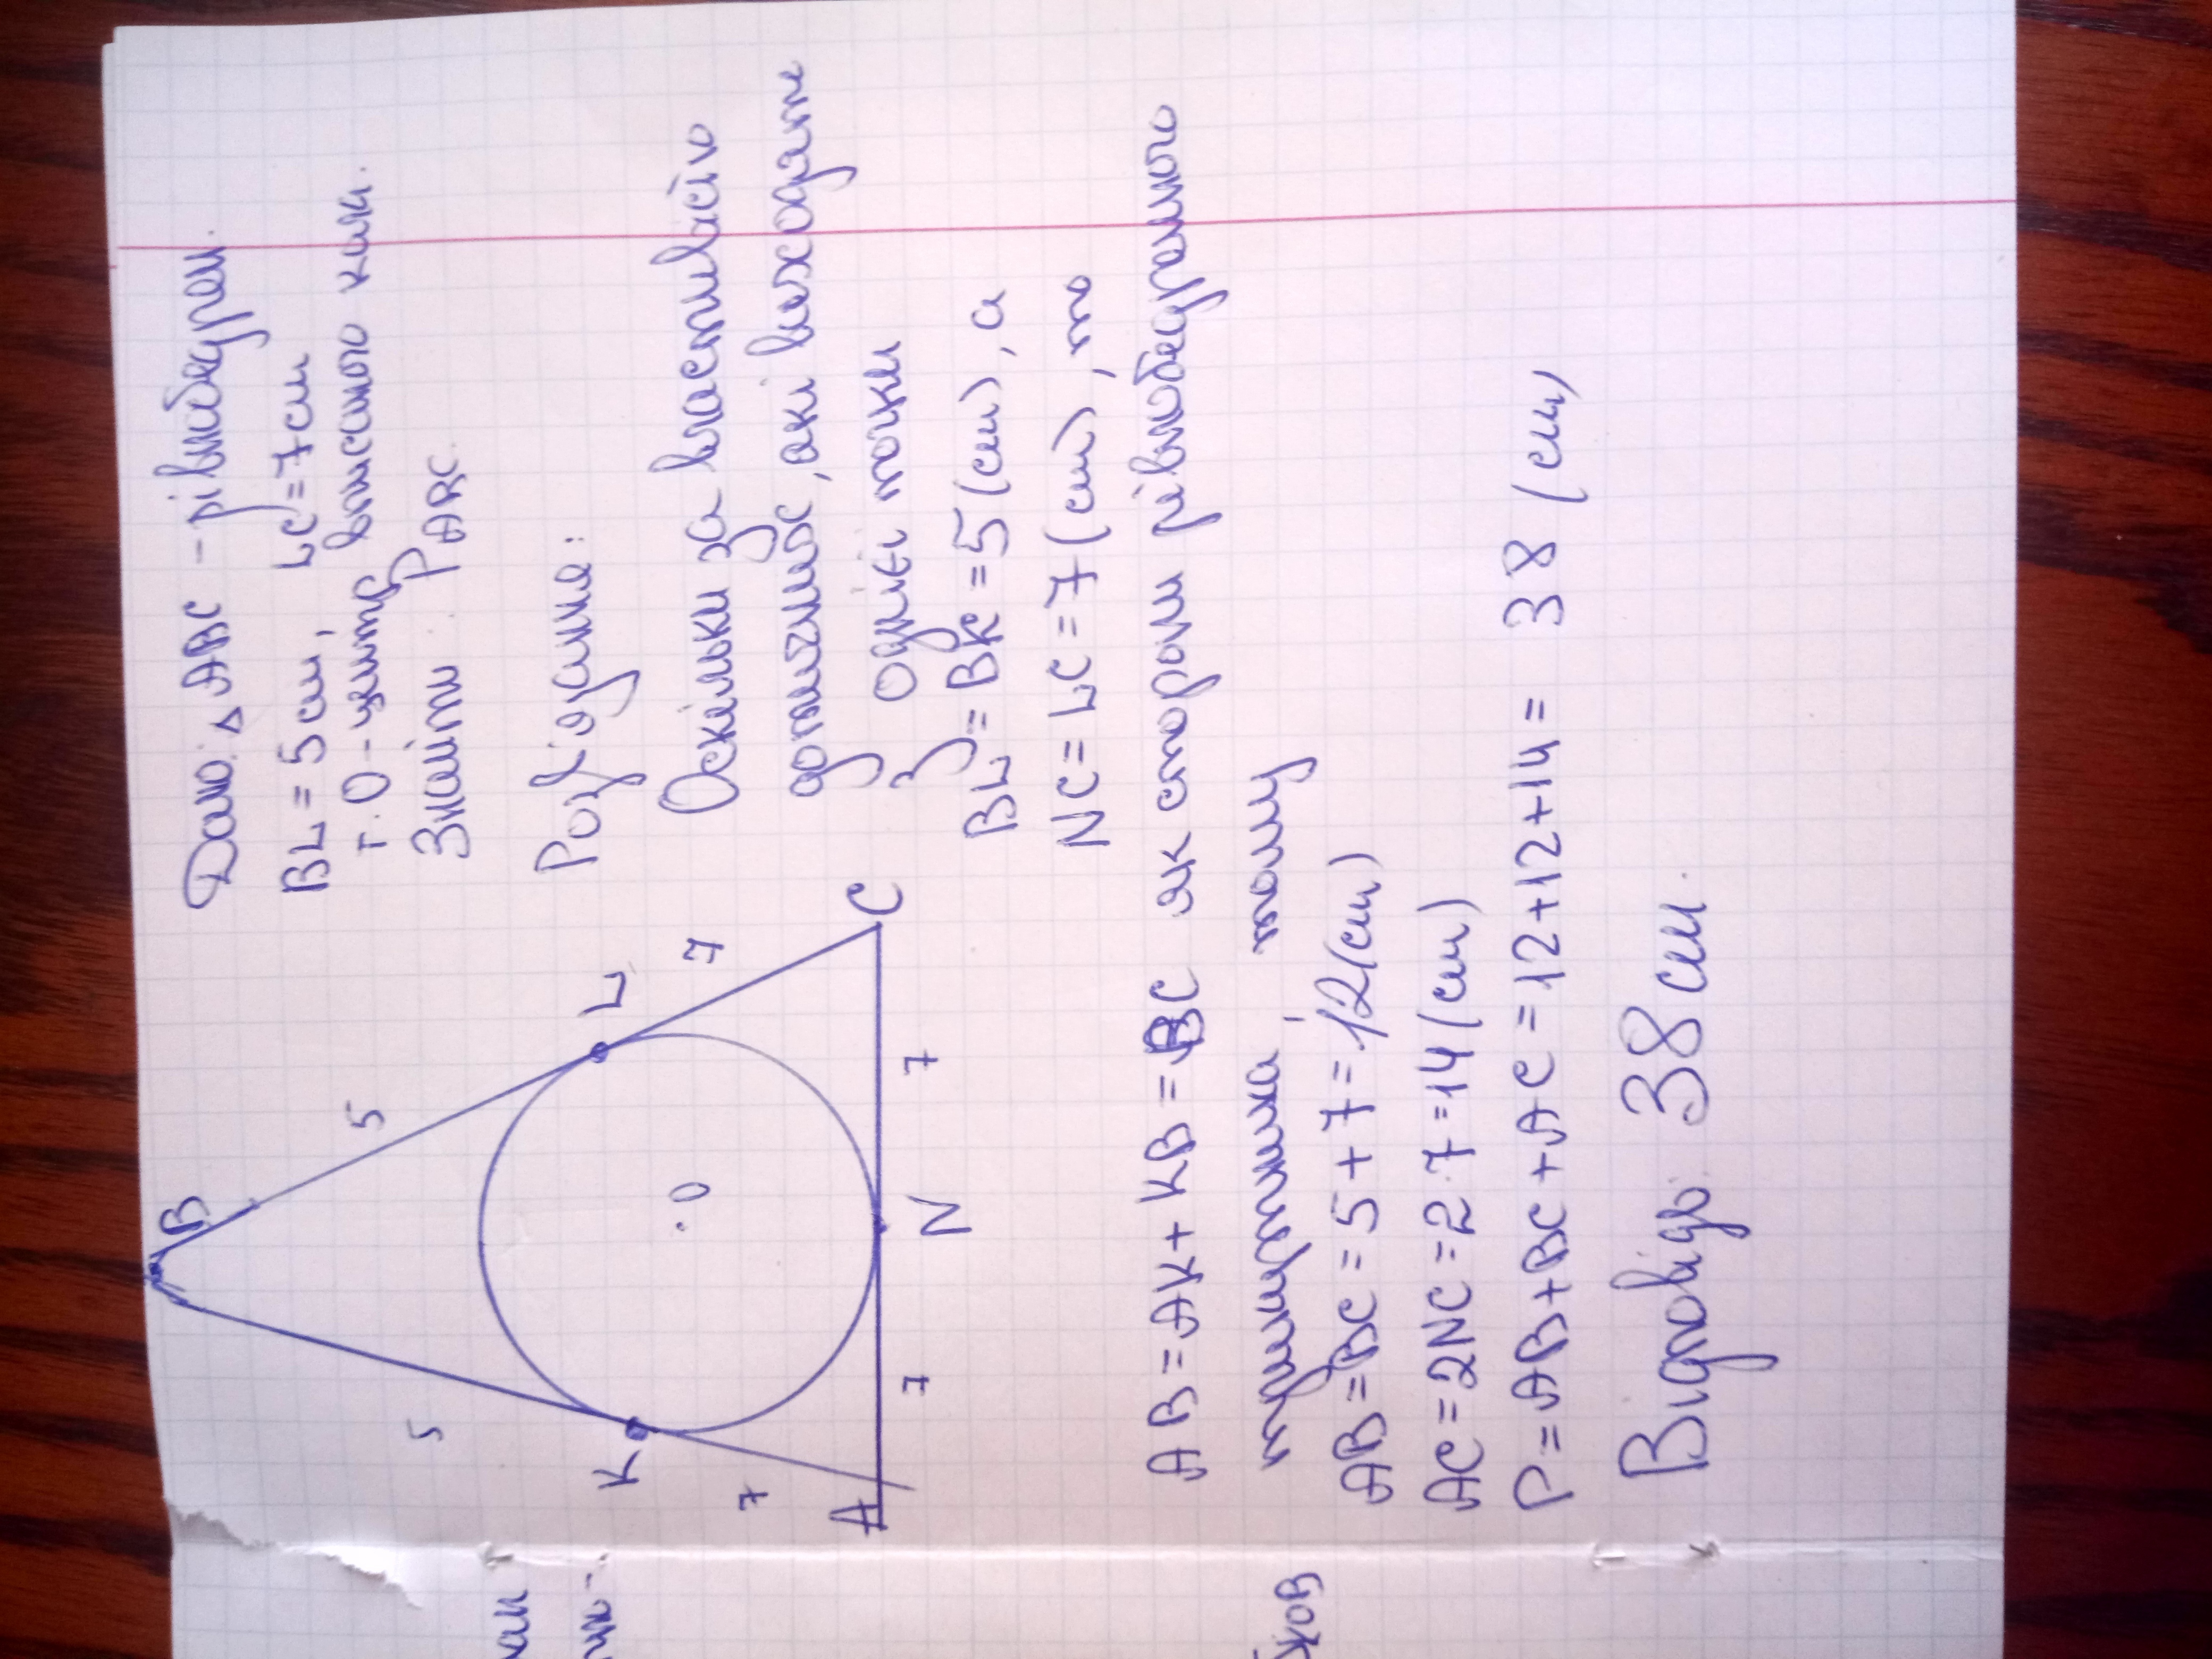 Дано: △ABC - рівнобедрен.
BL = 5 см, LC = 7 см
т. O - центр вписаного кола.
Знайти: P ABC.
Розв'язання:
Оскільки за властивістю
дотичних, які виходять
з однієї точки
BL = BK = 5 (см), а
NC = LC = 7 (см), то
B
5
5
K
L
7
7
.O
A
C
7
N
7
AB = AK + KB = BC як сторони рівнобедреного
трикутника, тому
AB = BC = 5 + 7 = 12 (см)
AC = 2NC = 2·7 = 14 (см)
P = AB + BC + AC = 12 + 12 + 14 = 38 (см)
Відповідь: 38 см.